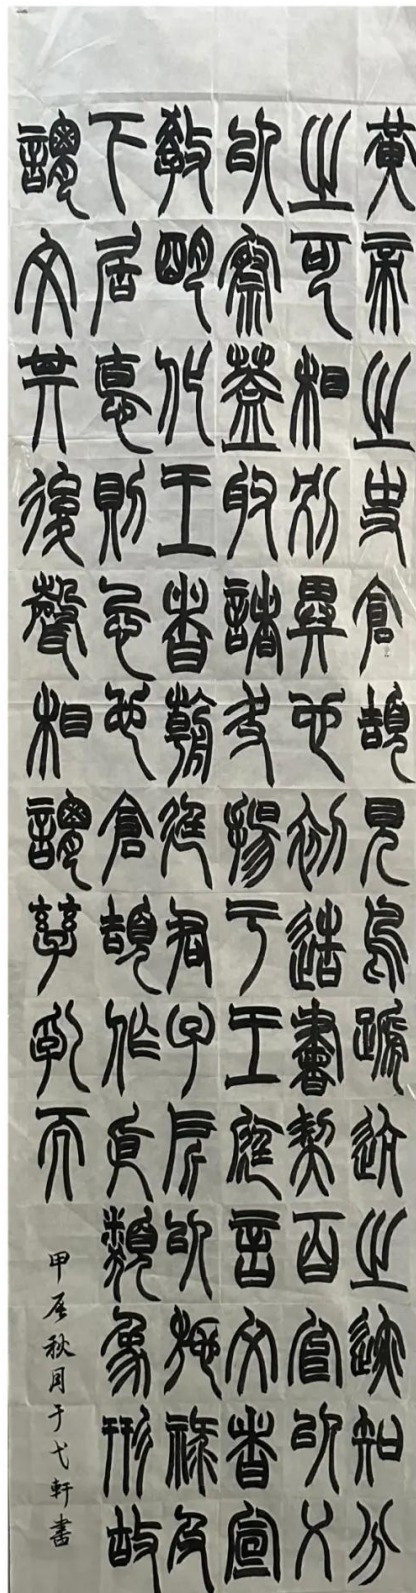 黃帝之史倉頡見鳥蹏迒之迹知分
之可相別異也初造書契百官以乂
以察蓋取諸夬揚于王庭言文者宣
教明化王者朝廷君子所以施祿及
下居悳則忌也倉頡作類象形故
謂文其後聲相謂孳乳而
甲辰秋月于弋軒書